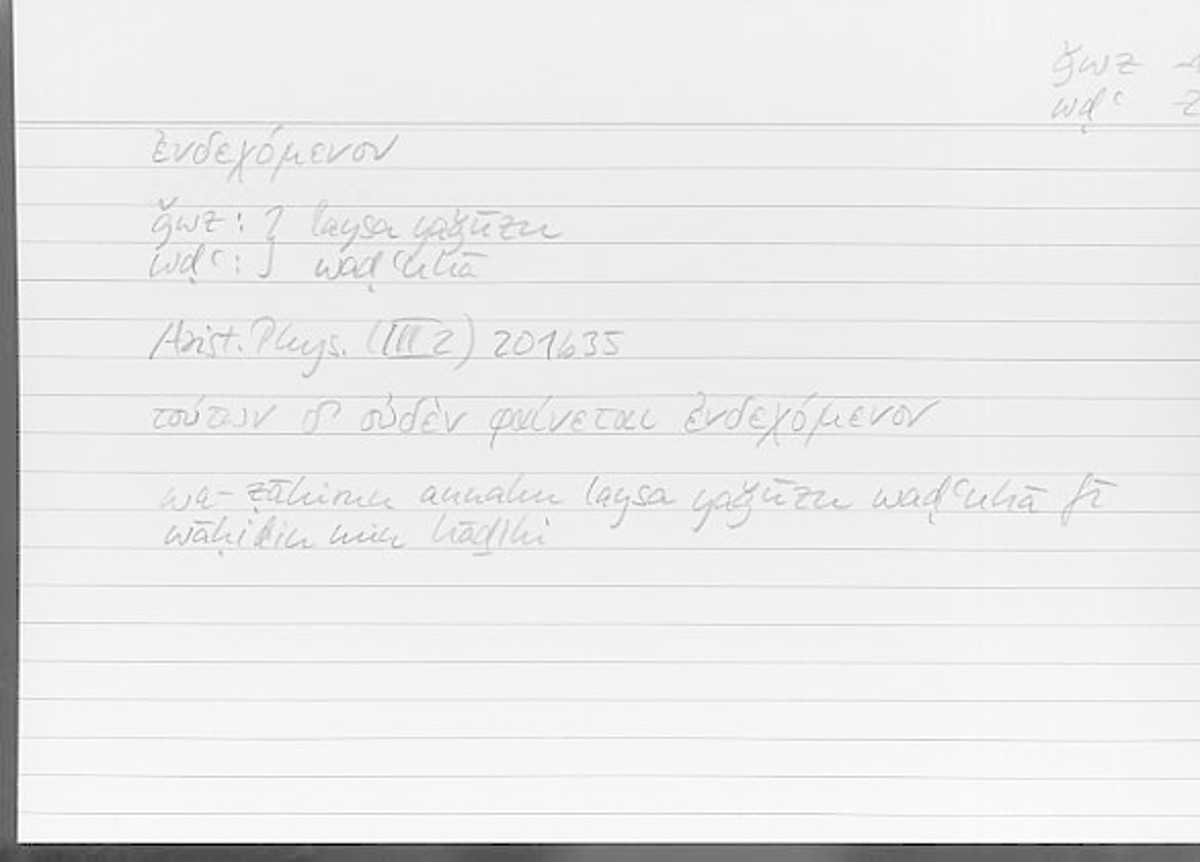 ǧwz -1
wḍʿ -2
ἐνδεχόμενον
ǧwz : } laysa yaǧūzu
wḍʿ : } waḍʿuhā
Arist. Phys. (III 2) 201b35
τούτων δ' οὐδὲν φαίνεται ἐνδεχόμενον
wa-ẓāhirun annahu laysa yaǧūzu waḍʿuhā fī
wāḥidin min hāḏihi